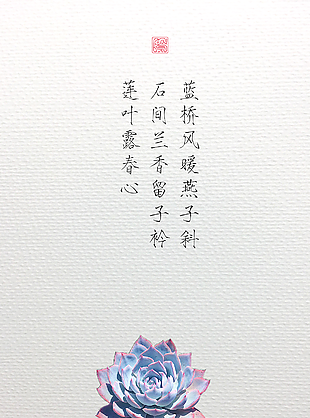 蓝桥风暖燕子斜
石间兰香留子衿
莲叶露春心